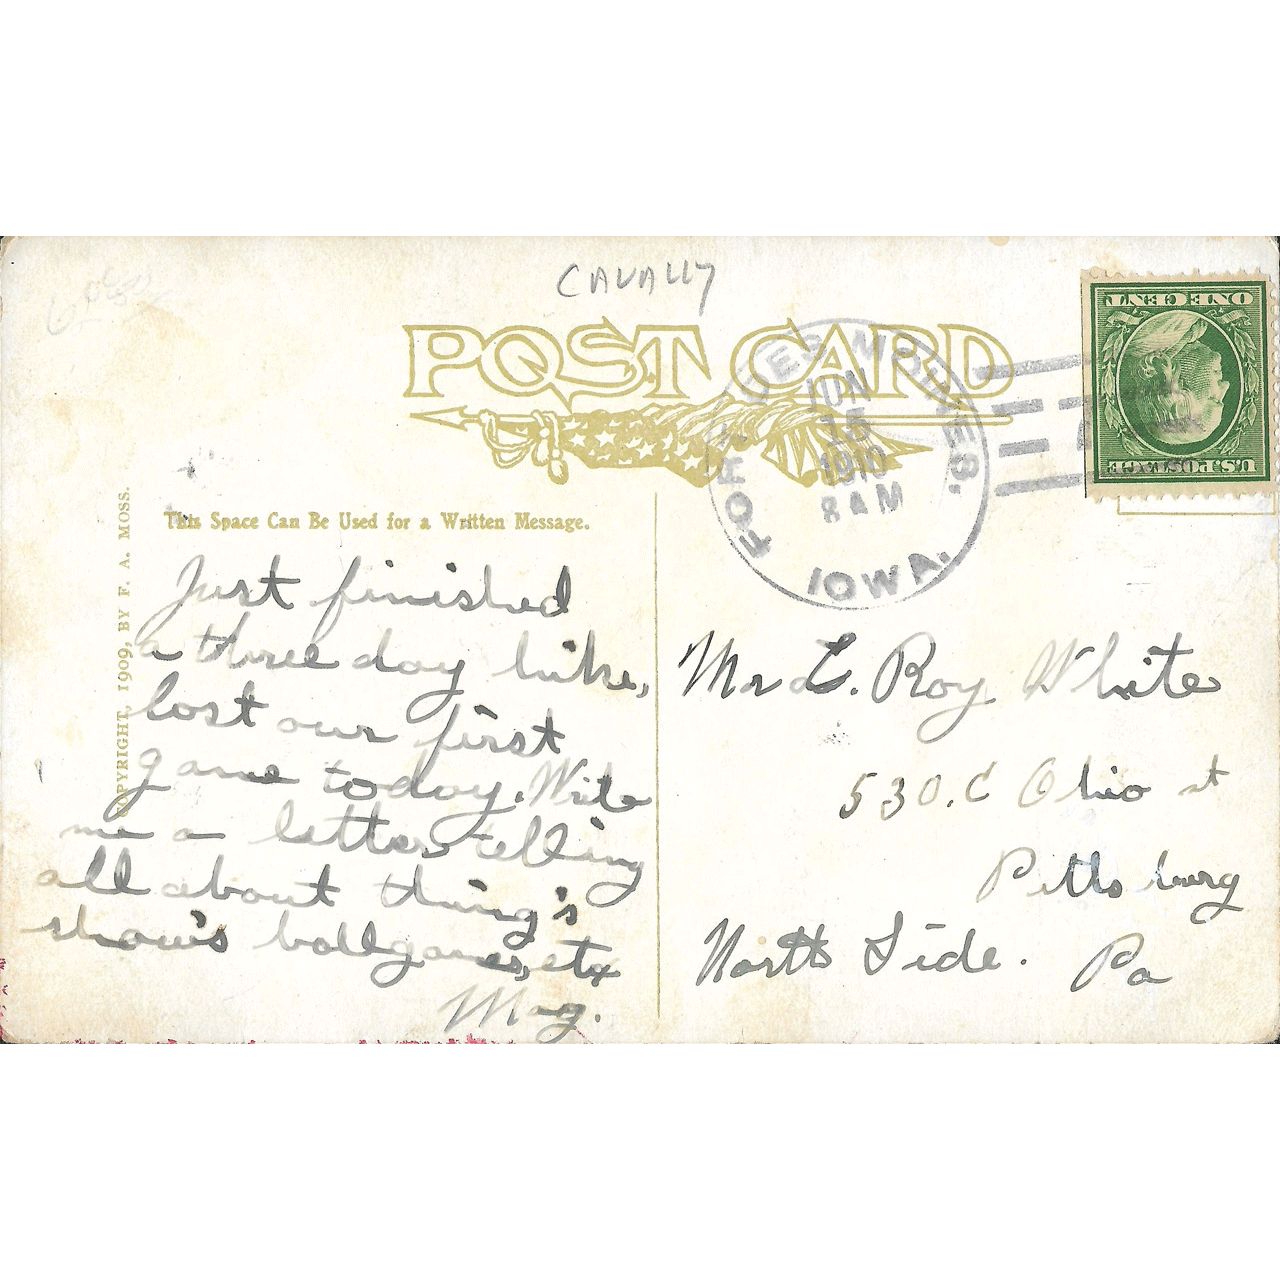 CAVALLY
POST CARD
FORT DES MOINES,
IOWA.
JUN
15
1910
8 AM
ONE CENT
U.S. POSTAGE
This Space Can Be Used for a Written Message.
COPYRIGHT, 1909, BY F. A. MOSS.
Just finished
a three day hike,
lost our first
game today. Write
me a letter telling
all about thing's
show's ballgames, etc
Mag.
Mr L. Roy White
530. C Ohio st
Pittsburg
North Side. Pa